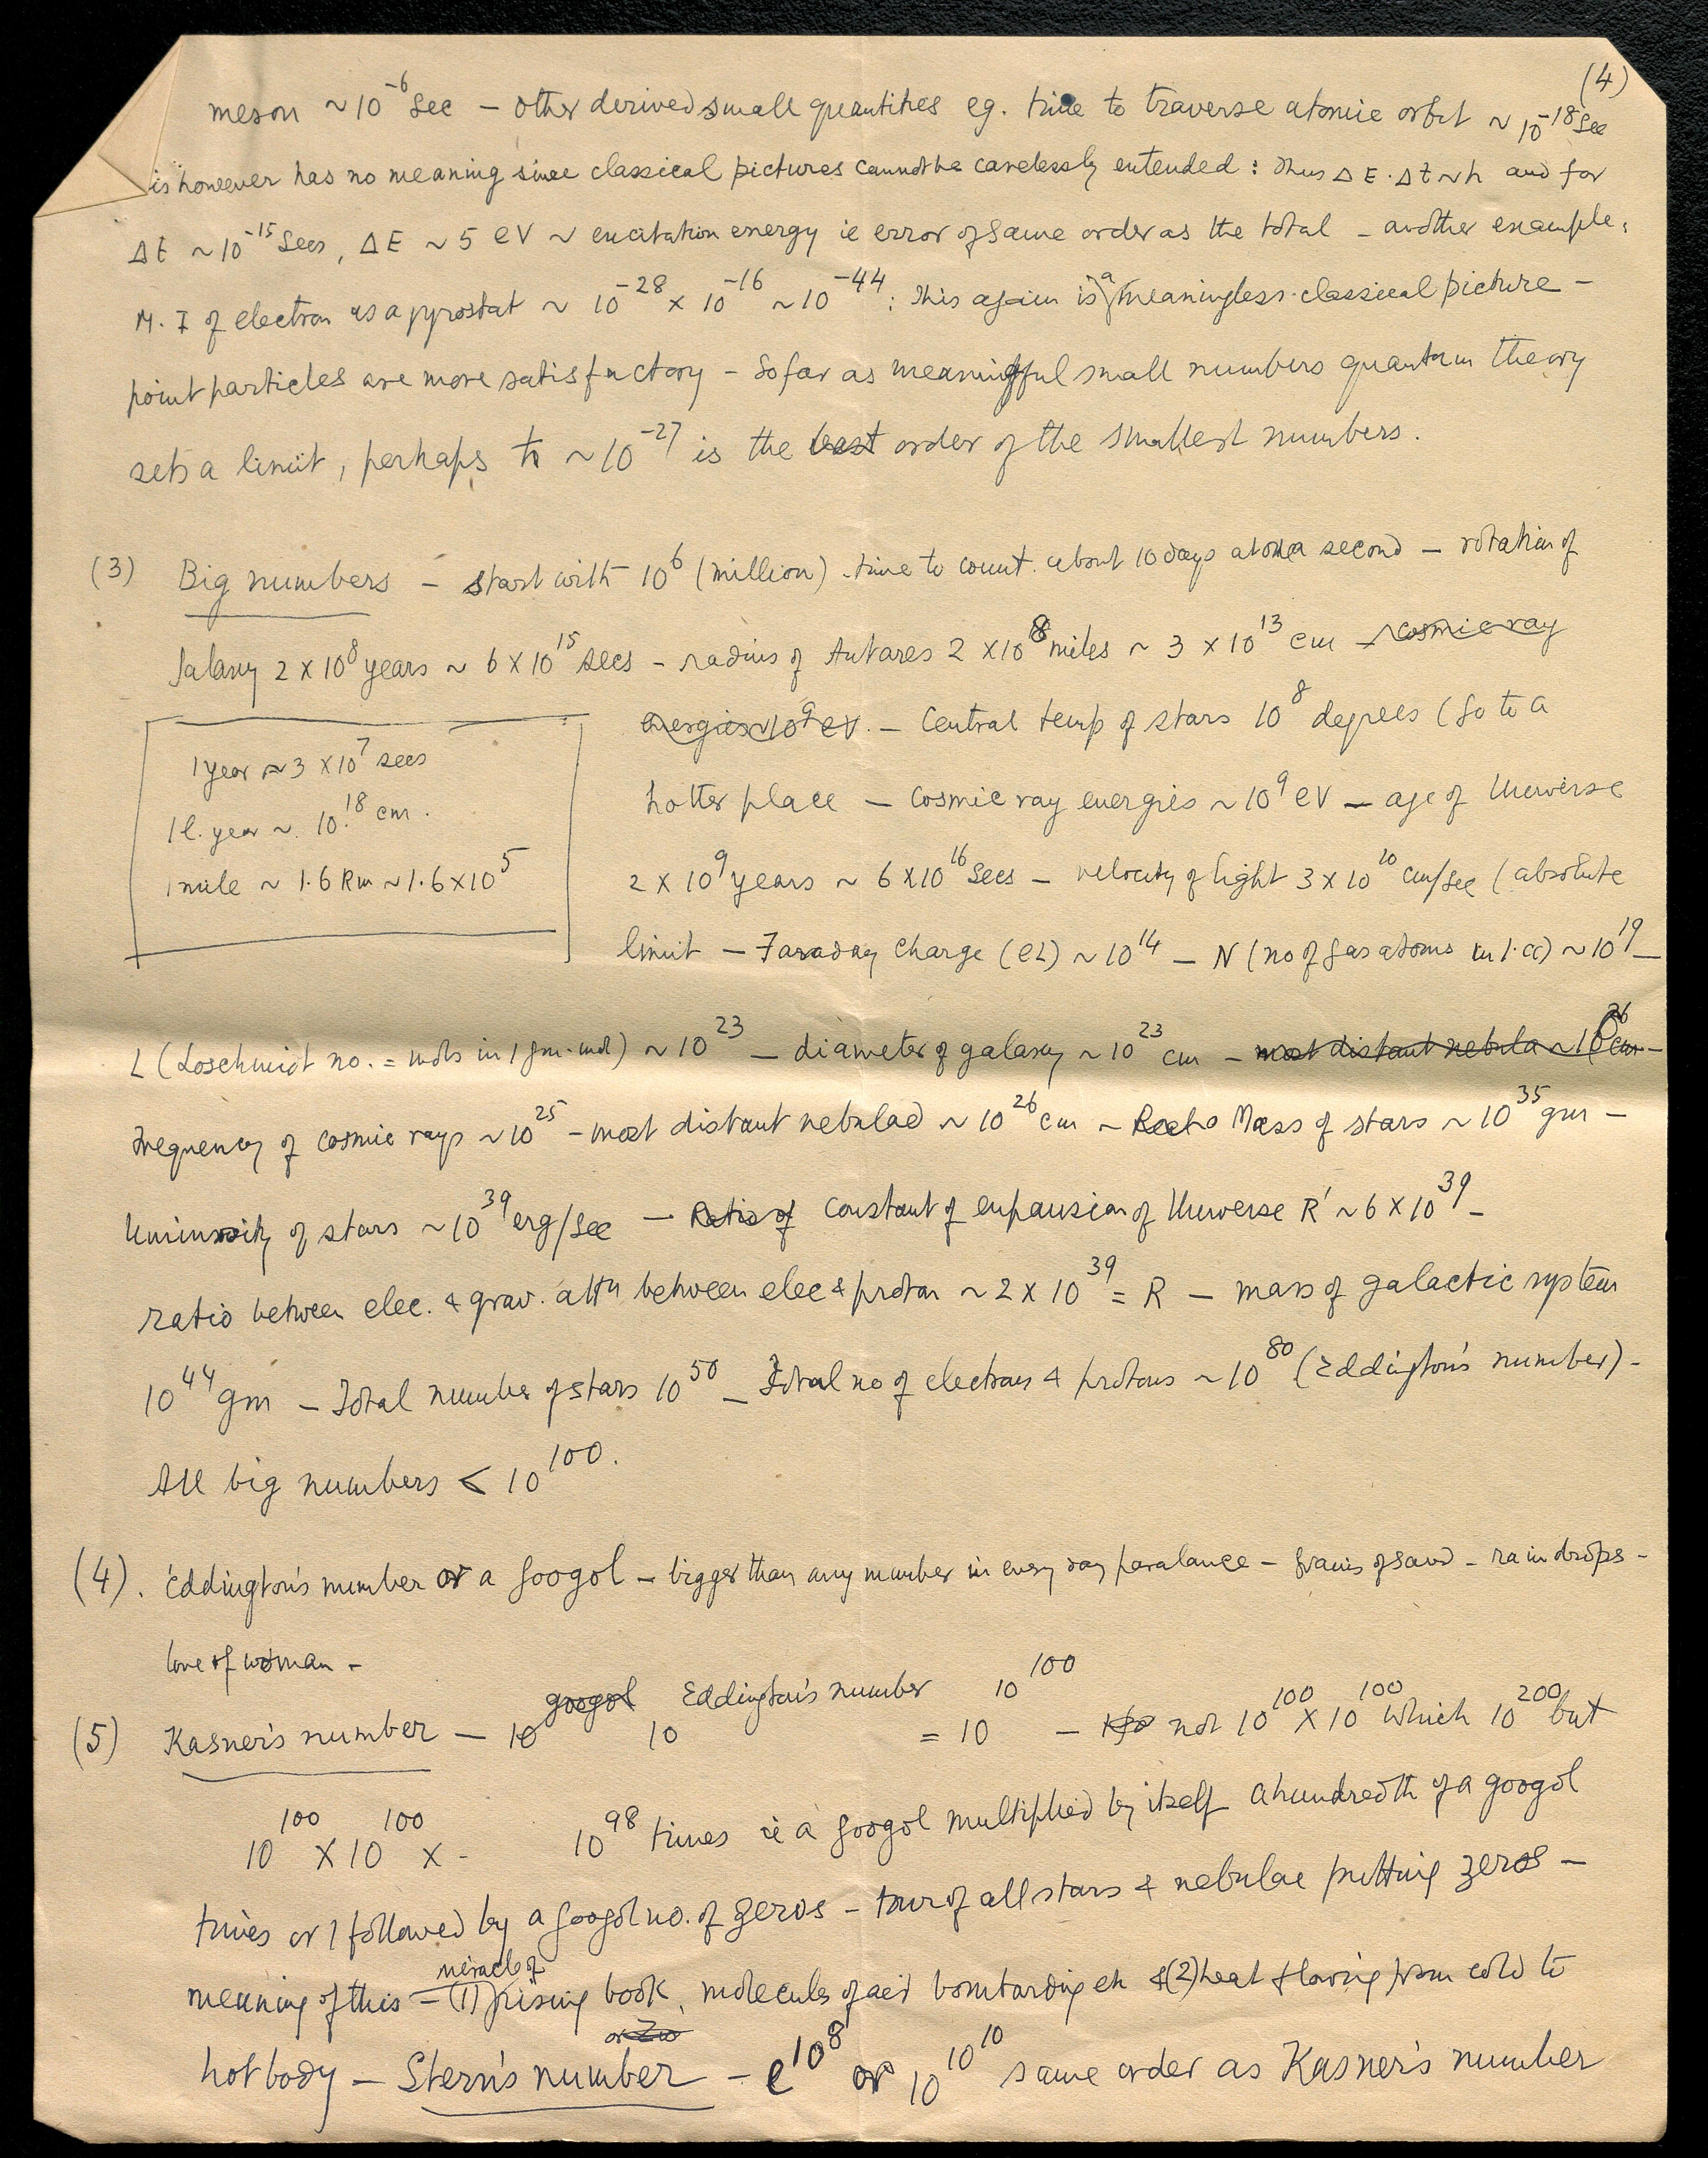 (4)
meson ~10⁻⁶ sec – other derived small quantities eg. time to traverse atomic orbit ~ 10⁻¹⁸ sec
is however has no meaning since classical pictures cannot be carelessly extended : Thus ΔE·Δt~h and for
Δt ~10⁻¹⁵ secs, ΔE ~ 5 eV ~ excitation energy ie error of same order as the total – another example,
M. I of electron as a gyrostat ~ 10⁻²⁸ × 10⁻¹⁶ ~ 10⁻⁴⁴ : This again is a meaningless classical picture –
point particles are more satisfactory – So far as meaningful small numbers quantum theory
sets a limit, perhaps ħ ~10⁻²⁷ is the least order of the smallest numbers.
(3) Big numbers – start with 10⁶ (million) time to count about 10 days at one a second – rotation of
Galaxy 2 × 10⁸ years ~ 6 × 10¹⁵ secs – radius of Antares 2 × 10⁸ miles ~ 3 × 10¹³ cm – cosmic ray
energies ~10⁹ eV. – Central temp of stars 10⁸ degrees (Go to a
hotter place – cosmic ray energies ~ 10⁹ eV – age of Universe
2 × 10⁹ years ~ 6 × 10¹⁶ secs – velocity of light 3 × 10¹⁰ cm/sec (absolute
limit – Faraday charge (eL) ~ 10¹⁴ – N (no of gas atoms in 1·cc) ~ 10¹⁹ –
1 year ~ 3 × 10⁷ secs
1 l. year ~ 10¹⁸ cm.
1 mile ~ 1.6 Km ~ 1.6 × 10⁵
L (Loschmidt no. = mols in 1 gm·mol) ~ 10²³ – diameter of galaxy ~ 10²³ cm – most distant nebula ~ 10²⁶ cm –
frequency of cosmic rays ~ 10²⁵ – most distant nebulae ~ 10²⁶ cm ~ Mass of stars ~ 10³⁵ gm –
luminosity of stars ~ 10³⁹ erg/sec – Ratio of Constant of expansion of Universe R' ~ 6 × 10³⁹ –
ratio between elec. & grav. attn between elec & proton ~ 2 × 10³⁹ = R – mass of galactic system
10⁴⁴ gm – Total number of stars 10⁵⁰ – Total no of electrons & protons ~ 10⁸⁰ (Eddington's number) –
All big numbers < 10¹⁰⁰.
(4). Eddington's number or a googol – bigger than any number in every day paralance – grains of sand – rain drops –
love of woman –
(5) Kasner's number – 10^googol 10^Eddington's number = 10^10^100 – not 10¹⁰⁰ × 10¹⁰⁰ which 10²⁰⁰ but
10¹⁰⁰ × 10¹⁰⁰ × - 10⁹⁸ times ie a googol multiplied by itself a hundredth of a googol
times or 1 followed by a googol no. of zeros – tour of all stars & nebulae putting zeros –
meaning of this – (1) miracle of rising book, molecules of air bombarding etc &(2) heat flowing from cold to
hot body – Stern's number – e^10^8 or 10^10^10 same order as Kasner's number